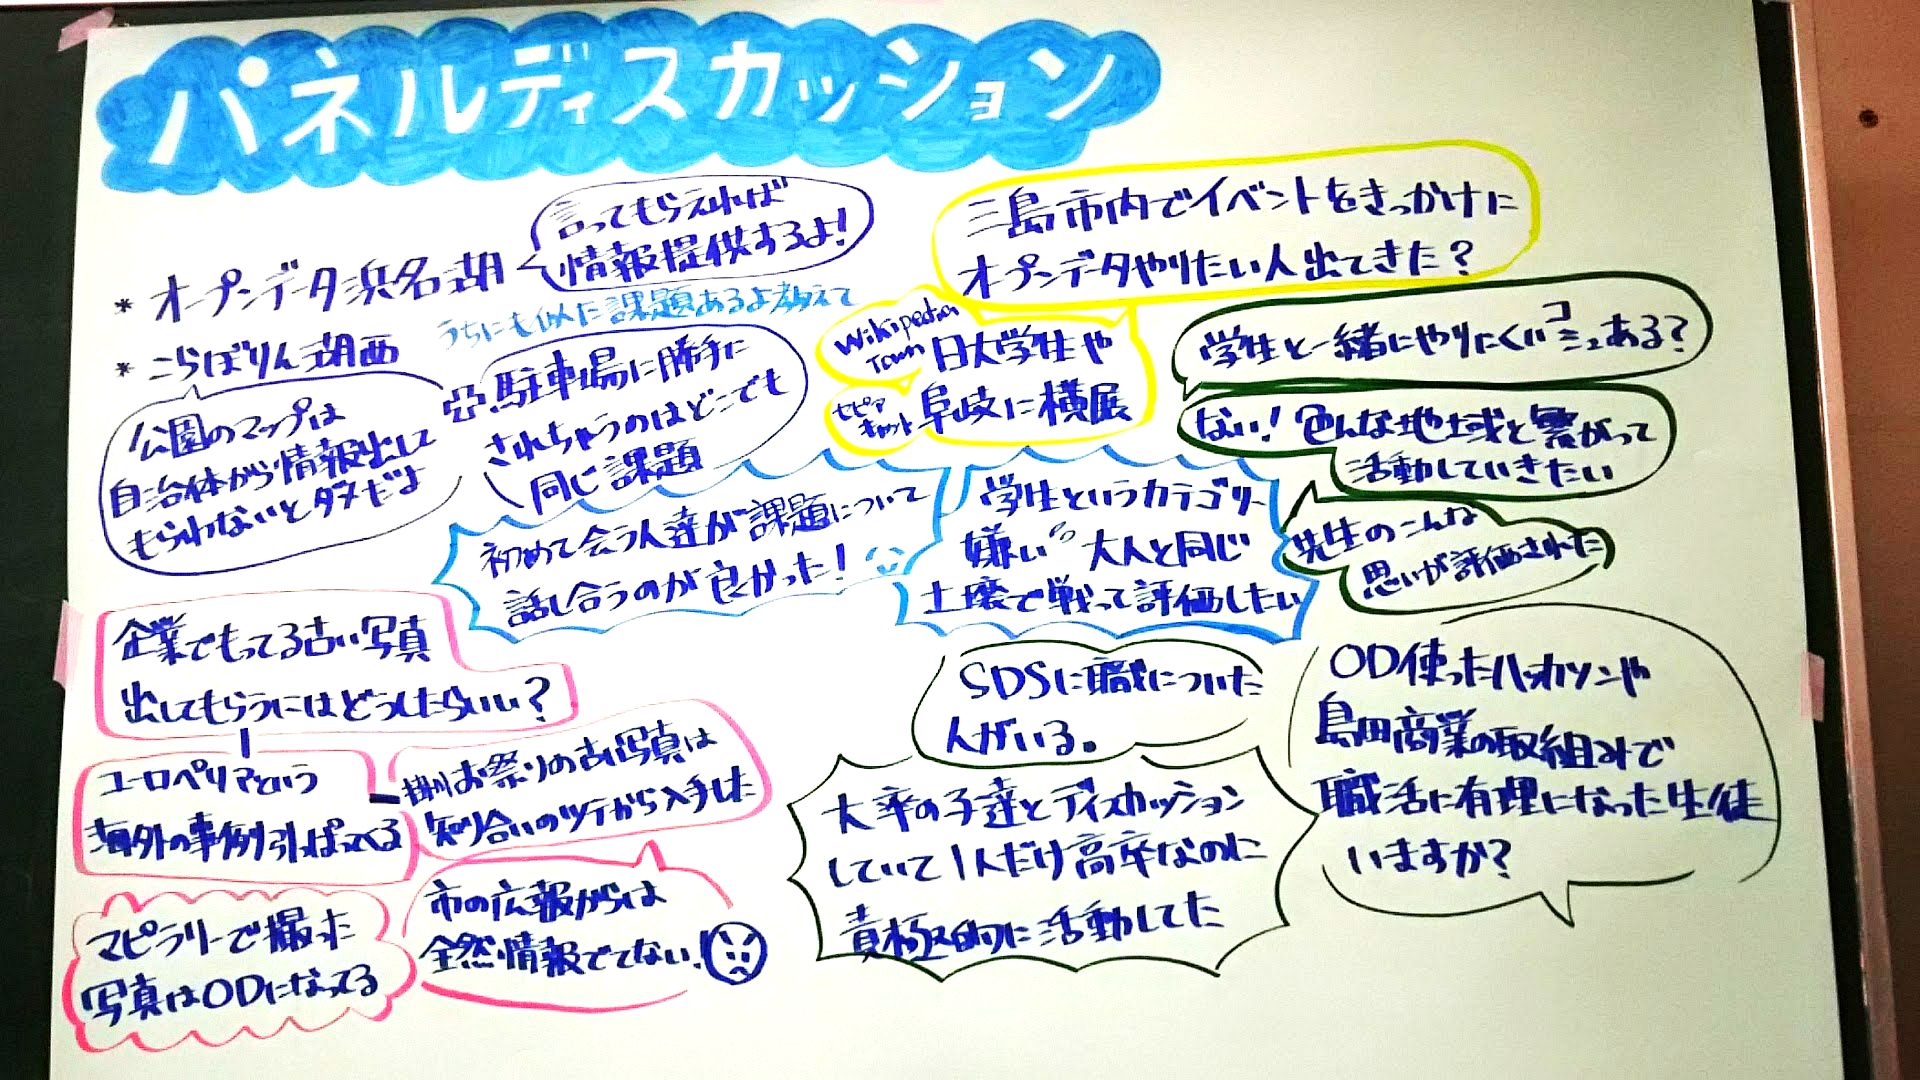 パネルディスカッション
* オープンデータ浜名湖
言ってもらえれば
情報提供するよ!
うちにも似た課題あるよ教えて
* こらぼりん湖西
公園のマップは
自治体から情報出して
もらわないとダメだよ
駐車場に勝手に
されちゃうのはどこでも
同じ課題
初めて会う人達が課題について
話し合うのが良かった!
三島市内でイベントをきっかけに
オープンデータやりたい人出てきた?
Wikipedia
Town
日大学生や
セピア
キャット
阜岐に横展
学生と一緒にやりにくいコミュある?
ない! 色んな地域と繋がって
活動していきたい
学生というカテゴリー
嫌い 大人と同じ
土壌で戦って評価したい
先生のこんな
思いが評価された
企業でもってる古い写真
出してもらうにはどうしたらいい?
ユーロペリアという
海外の事例引っぱってくる
掛川お祭りの古い写真は
知り合いのツテから入手した
市の広報からは
全然情報でてない!
マピラリーで撮った
写真はODになってる
SDSに職についた
人がいる。
大卒の子達とディスカッション
していて1人だけ高卒なのに
責極的に活動してた
OD使ったハッカソンや
島田商業の取組みで
職活に有理になった生徒
いますか?